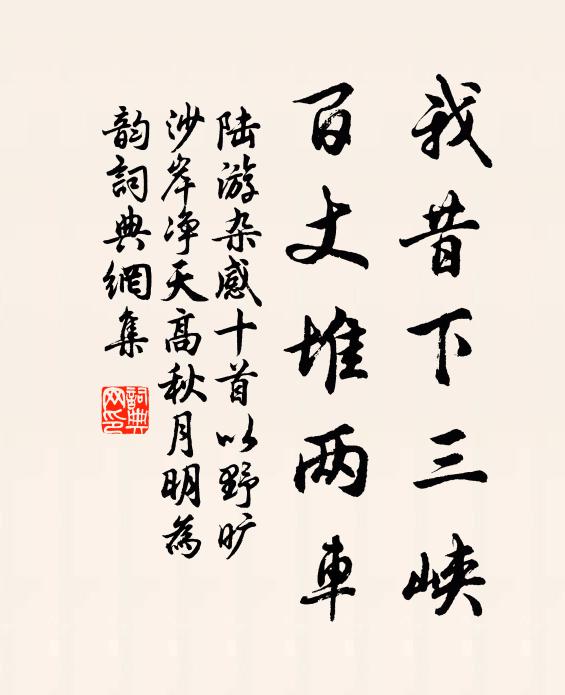 我昔下三峡
百丈堆两車
陆游杂感十首以野旷
沙岸净天高秋月明為
韵詞典網集
詞典网印